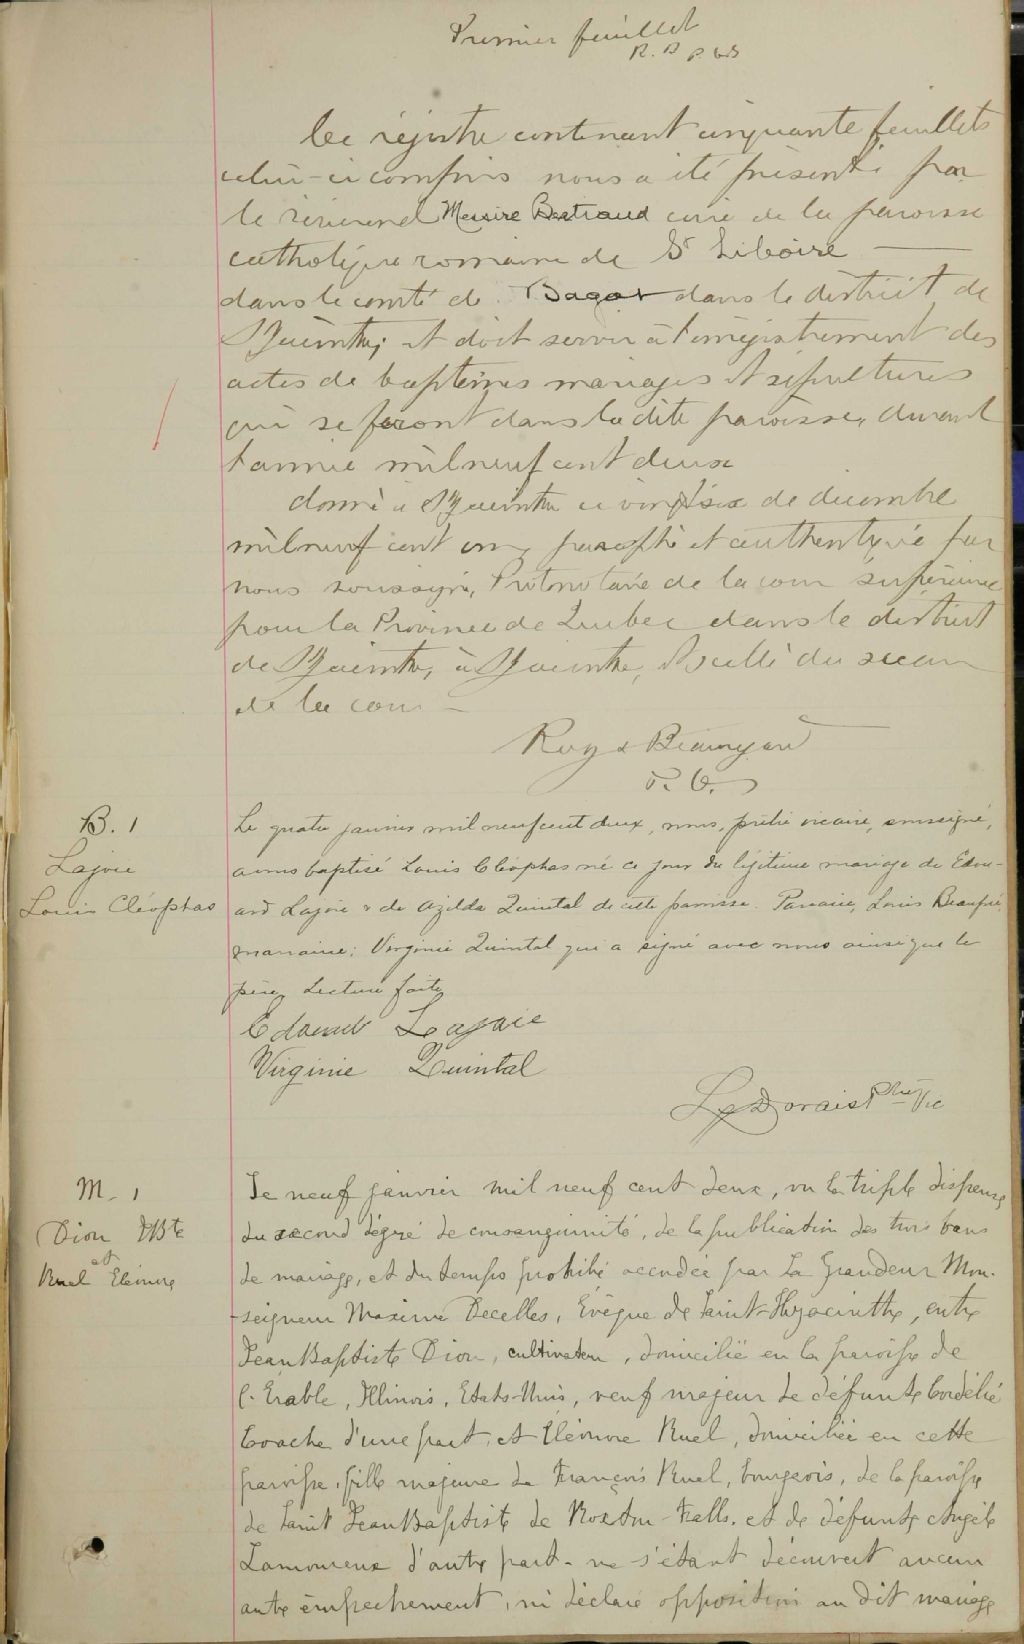 Premier feuillet
R. B P. C.S
Ce registre contenant cinquante feuillets
celui-ci compris nous a été présenté par
le révérend Messire Bertraud curé de la paroisse
catholique romaine de St Liboire
dans le comté de Bagot dans le district de
St Hyacinthe, et doit servir à l'enregistrement des
actes de baptêmes mariages et sépultures
qui se feront dans la dite paroisse, durant
l'année mil neuf cent deux
donné à St Hyacinthe ce vingtsix de decembre
mil neuf cent un, paraphé et authentiqué par
nous soussigné, Protonotaire de la cour supérieure
pour la Province de Quebec dans le district
de St Hyacinthe, à St Hyacinthe, et scellé du sceau
de la cour
Roy & Beauregard
P. C. S
B. 1
Lajoie
Louis Cléophas
Le quatre janvier mil neuf cent deux, nous, prêtre vicaire, soussigné,
avons baptisé Louis Cléophas né ce jour du légitime mariage de Edou-
ard Lajoie & de Azilda Quintal de cette paroisse. Parrain, Louis Beaupré,
marraine; Virginie Quintal qui a signé avec nous ainsi que le
père. Lecture faite
Edouard Lajoie
Virginie Quintal
Ls Dorais Ptre Vic
M. 1
Dion J Bte
et
Ruel Eléonore
Le neuf janvier mil neuf cent deux, vu la triple dispense
du second dégré de consanguinité, de la publication des trois bans
de mariage, et du temps prohibé accordée par Sa Grandeur Mon-
-seigneur Maxime Decelles, Evêque de Saint-Hyacinthe, entre
Jean Baptiste Dion, cultivateur, domicilié en la paroisse de
l'Erable, Illinois, Etats-Unis, veuf majeur de défunte Cordélie
Coache d'une part, et Eléonore Ruel, domiciliée en cette
paroisse, fille majeure de François Ruel, bourgeois, de la paroisse
de Saint Jean Baptiste de Roxton-Falls, et de défunte Angèle
Lamoureux d'autre part. ne s'étant découvert aucun
autre empêchement, ni déclaré opposition au dit mariage